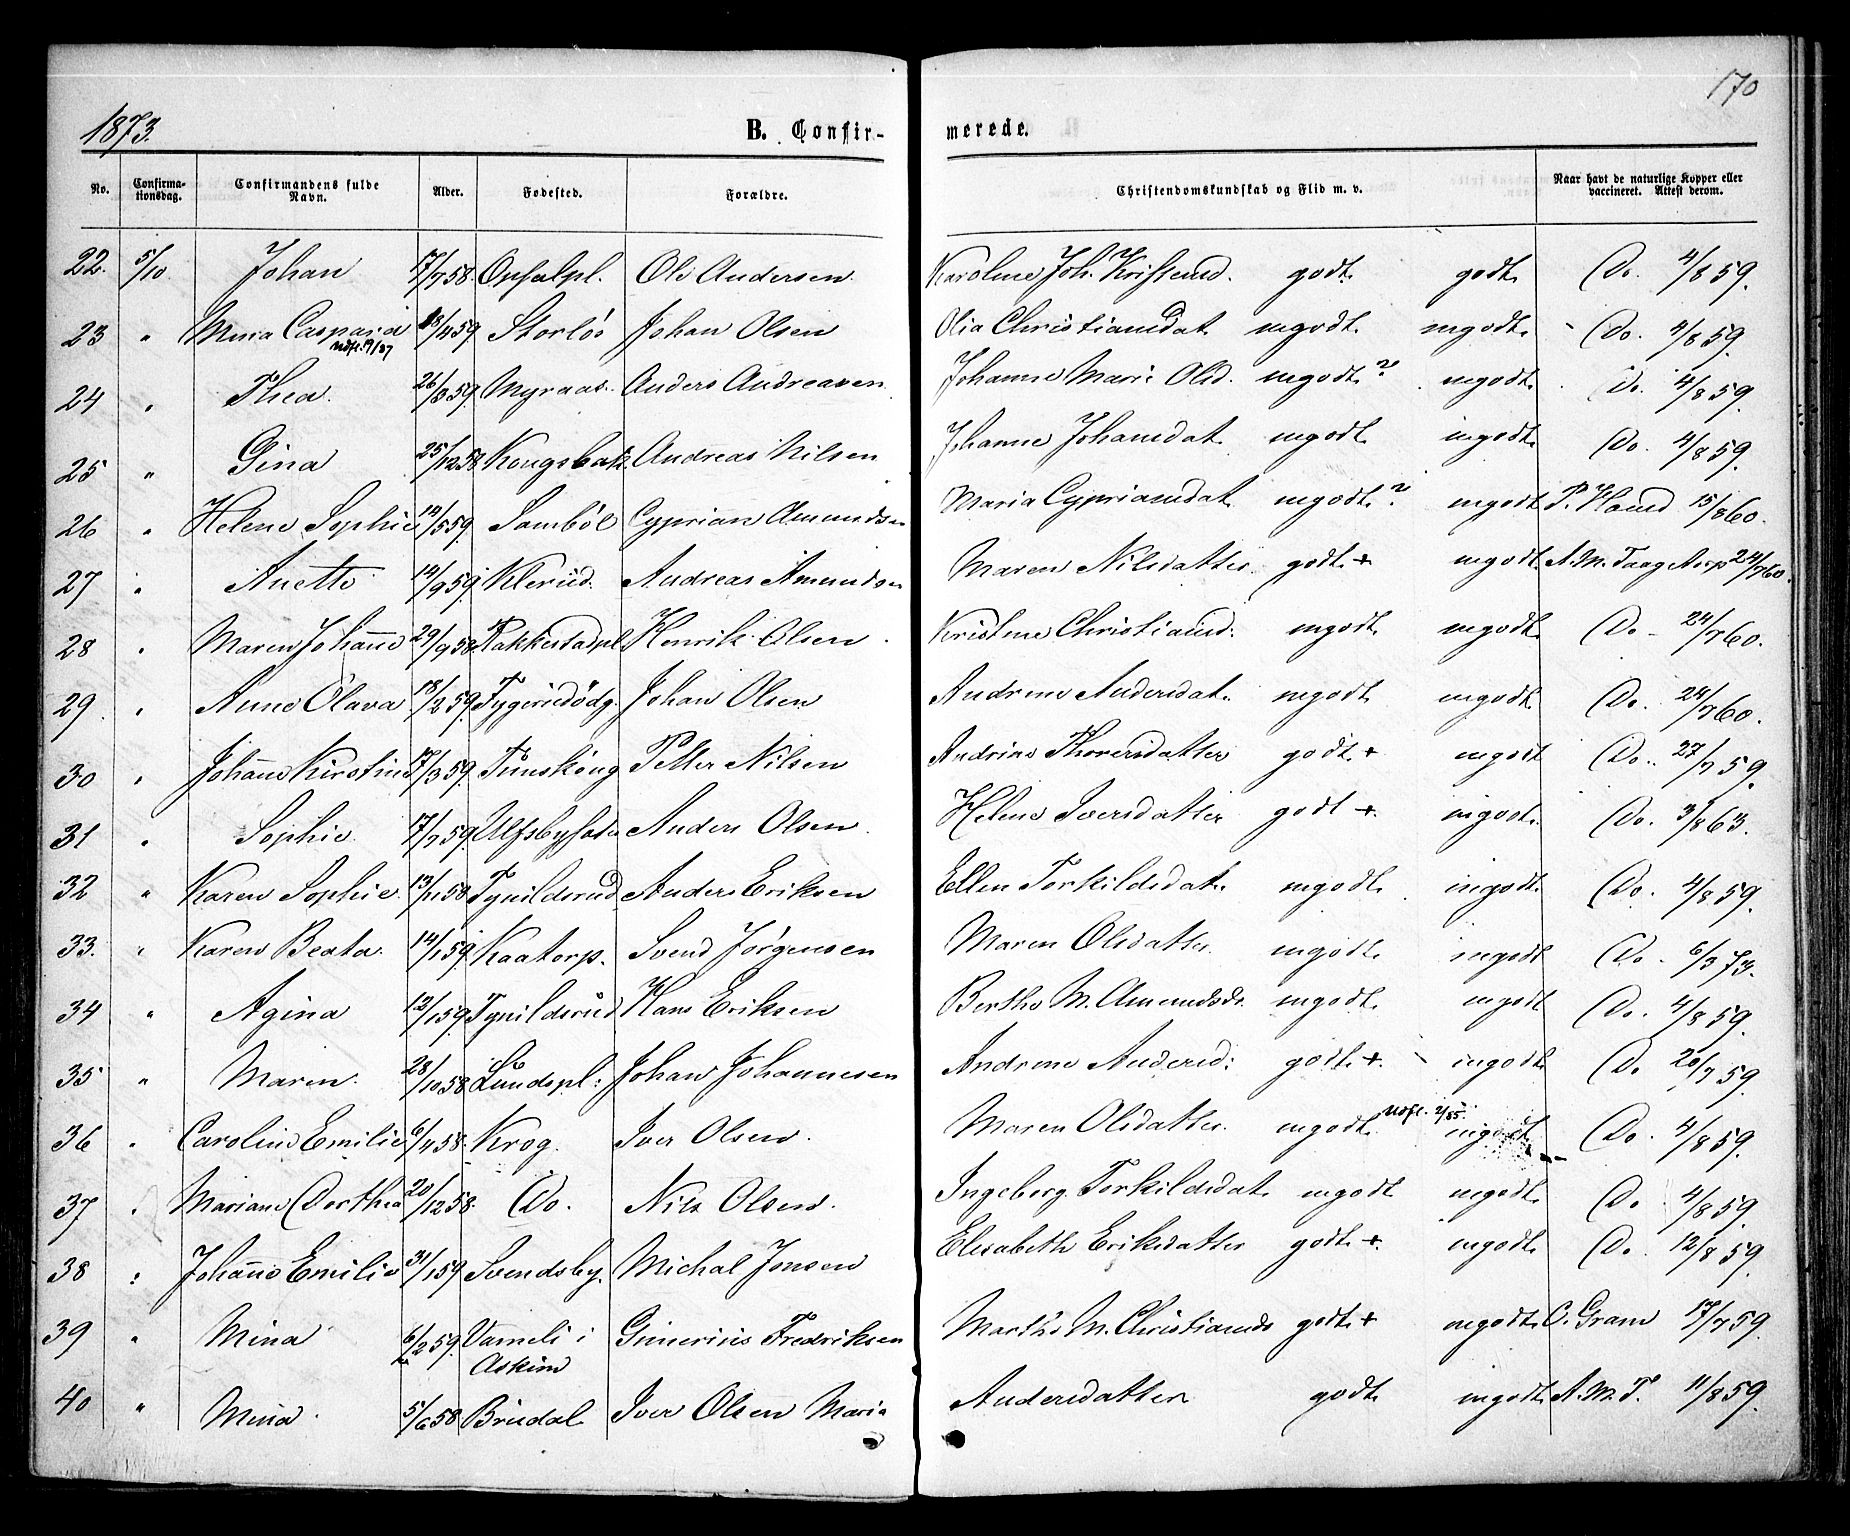 170
1873.
B. Confir- merede.
No. Confirma-tionsdag. Confirmandens fulde Navn. Alder. Fødested. Forældre. Christendomskundskab og Flid m. v. Naar havt de naturlige Kopper eller vaccineret. Attest derom.
22. 5/10. Johan 17/7 58. Onsalpl. Ole Andersen. Karoline Joh. Kristiand. godt. godt. Do. 4/8 59.
23 " Mina Caspara 18/4 59 Storlös Johan Olsen Olia Christiansdat. mgodt. mgodt. Do. 4/8 59.
Udfl. 19/87
24 " Thea. 26/3 59. Myraas. Anders Andreasen. Johanne Marie Olsd. mgodt? mgodt. Do. 4/8 59.
25 " Gina 25/12 58 Kongsbak. Andreas Nilsen Johanne Johansdat. mgodt. mgodt. Do. 4/8 59.
26 " Helene Sophie 12/5 59. Samböl Cyprian Amundsen Maria Cypriansdat mgodt? mgodt P. Hound 15/8 60.
27 " Anette 14/9 59. Klerud. Andreas Amundsen Maren Nilsdatter. godt + mgodt. A. M. Taagstorp 24/7 60.
28 " Maren Johanne 29/9 58. Rakkestadpl. Henrik Olsen. Kristine Christiansd. mgodt. mgodt. Do - 24/7 60.
29. " Anne Olava 18/2 59. Johan Olsen Andrine Andersdat. mgodt. mgodt. Do. 24/7 60.
30 " Johanne Kirstine 17/3 59. Tunskoug Petter Nilsen Andrine Thoresdatter godt. + mgodt Do.. 27/7 59.
31 " Sophie. 17/7 59. Anders Olsen. Helene Iversdatter godt + mgodt. Do. 3/8 63.
32 " Karen Sophie. 13/11 58 Tynildsrud Anders Eriksen Ellen Torkildsdat. mgodt. mgodt. Do. 4/8 59.
33. " Karen Beata. 14/1 59. Kaatorp. Svend Jørgensen Maren Olsdatter. mgodt. mgodt Do. 6/3 73.
34 " Agina 12/1 59. Tynildsrud Hans Eriksen Berthe M. Amundsd. mgodt. mgodt Do. 4/8 59.
35 " Maren. 28/10 58. Lundspl: Johan Johannesen Andrine Andersd: godt. +. mgodt. Do 20/7 59.
36 " Caroline Emilie 6/4 58. Krog. Iver Olsen. Maren Olsdatter. mgodt. Udfl. 2/85. mgodt. Do. 4/8 59.
37 " Mariane Dorthea 20/12 58. Do. Nils Olsen. Ingeborg Torkildsdat. mgodt mgodt. Do 4/8 59.
38 " Johanne Emilie 31/1 59 Svendsby. Michal Jonsen Elisabeth Eriksdatter godt +. mgodt. Do. 12/8 59.
39 " Mina 6/2 59. Vameli i Askim Gunerius Fredriksen Marthe M. Christiansd. godt + mgodt. O. Gram 17/7 59.
40 " Mina. 5/6 58 Brudal. Iver Olsen Maria Andersdatter godt. mgodt A. M. T. 11/8 59.